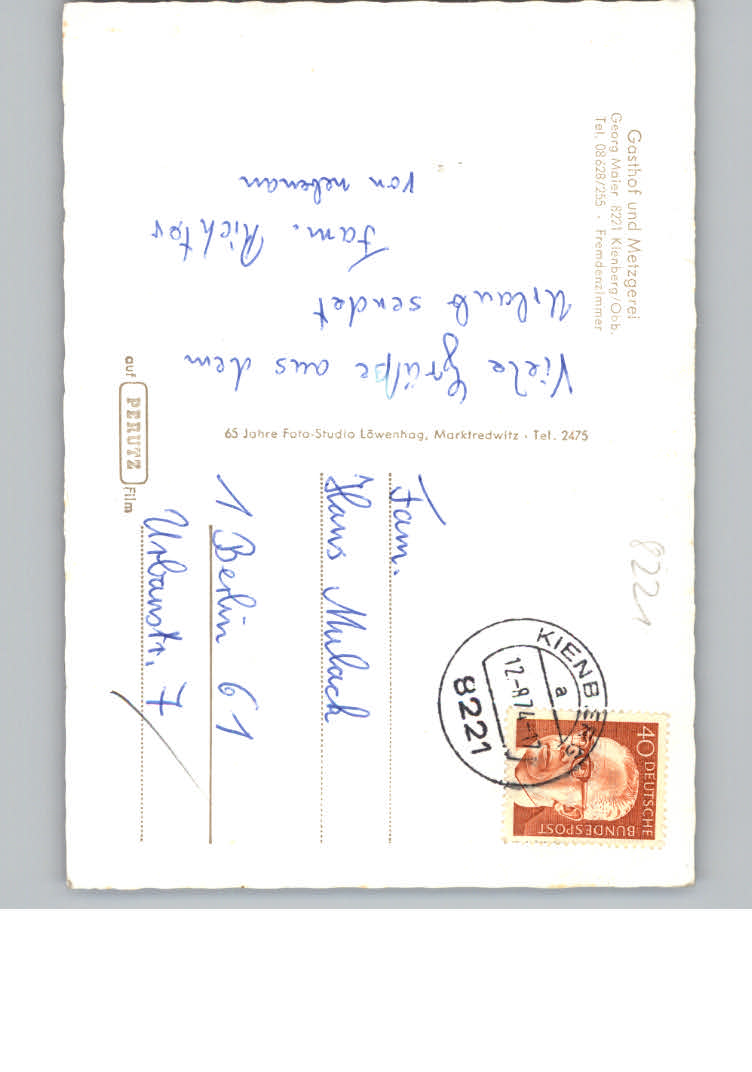 Gasthof und Metzgerei
Georg Maier 8221 Kienberg/Obb.
Tel. 08628/255 · Fremdenzimmer
Viele Grüße aus dem
Urlaub sendet
Fam. Richter
von nebenan
65 Jahre Foto-Studio Löwenhag, Marktredwitz · Tel. 2475
auf PERUTZ Film
8221
KIENBERG
a
12.-8.74-17
8221
40 DEUTSCHE
BUNDESPOST
Fam.
Hans Mulach
1 Berlin 61
Urbanstr. 7